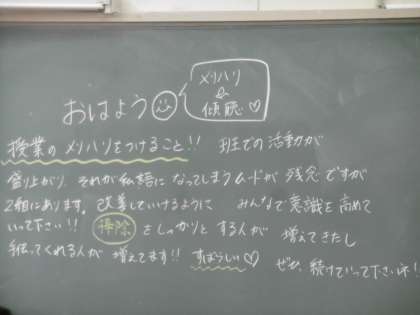 メリハリ
&
傾聴♡
おはよう
授業のメリハリをつけること!! 班での活動が
盛り上がり、それが私語になってしまうムードが残念ですが
2組にあります。改善していけるように みんなで意識を高めて
いって下さい!! 掃除をしっかりとする人が 増えてきたし
手伝ってくれる人が 増えてます!! すばらしい♡ ぜひ、続けていって下さいネ!